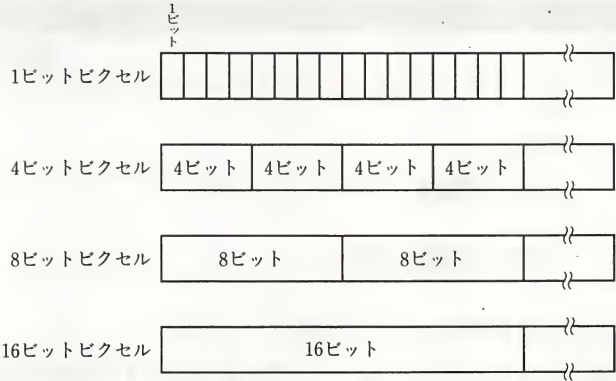 1ビット
1ビットピクセル
4ビットピクセル 4ビット 4ビット 4ビット 4ビット
8ビットピクセル 8ビット 8ビット
16ビットピクセル 16ビット